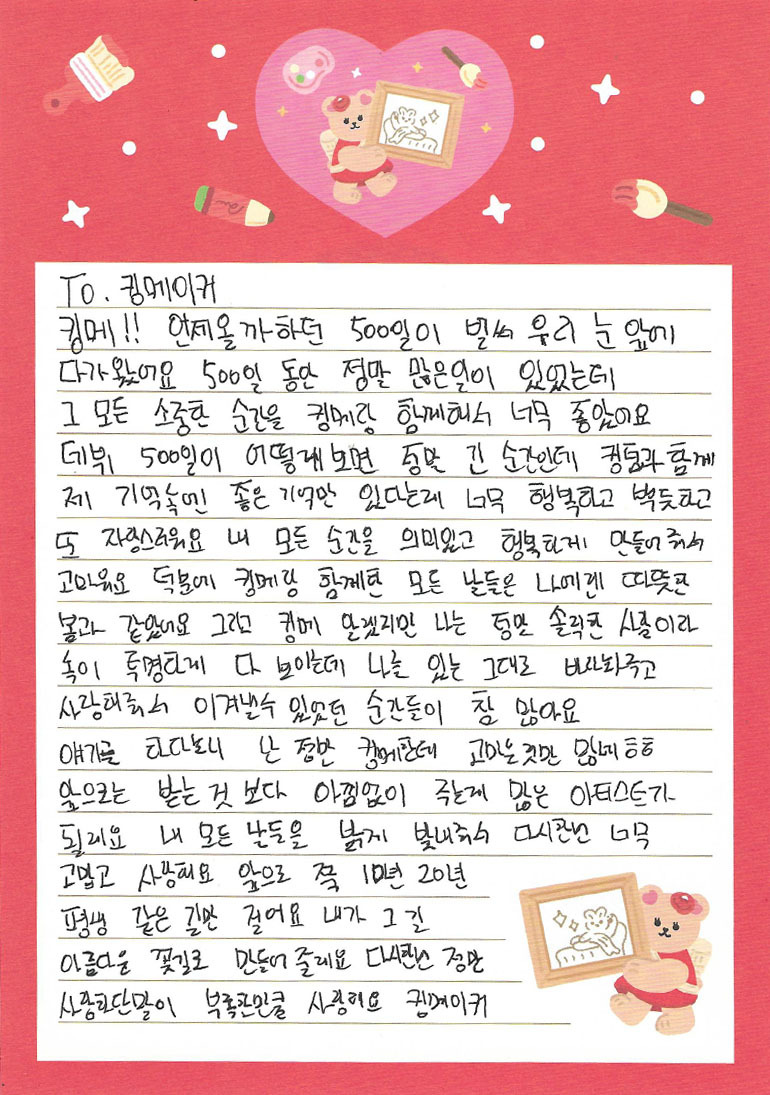 To. 킹메이커
킹메!! 언제올까하던 500일이 벌써 우리 눈앞에
다가왔어요 500일 동안 정말 많은일이 있었는데
그 모든 소중한 순간을 킹메랑 함께해서 너무 좋았어요
데뷔 500일이 어떻게보면 정말 긴 순간인데 킹메과 함께
제 기억속엔 좋은 기억만 있다는게 너무 행복하고 뿌듯하고
또 자랑스러워요 내 모든 순간을 의미있고 행복하게 만들어줘서
고마워요 덕분에 킹메랑 함께한 모든 날들은 나에겐 따뜻한
봄과 같았어요 그리고 킹메 알겠지만 나는 정말 솔직한 사람이라
속이 투명하게 다 보이는데 나를 있는 그대로 바라봐주고
사랑해줘서 이겨낼수 있었던 순간들이 참 많아요
얘기를 하다보니 난 정말 킹메한테 고마운것만 많네 ㅎㅎ
앞으로는 받는 것 보다 아낌없이 주는게 많은 아티스트가
될래요 내 모든 날들을 밝게 빛내줘서 다시한번 너무
고맙고 사랑해요 앞으로 쭉 10년 20년
평생 같은 길만 걸어요 내가 그 길
아름다운 꽃길로 만들어 줄래요 다시한번 정말
사랑한단말이 부족한만큼 사랑해요 킹메이커